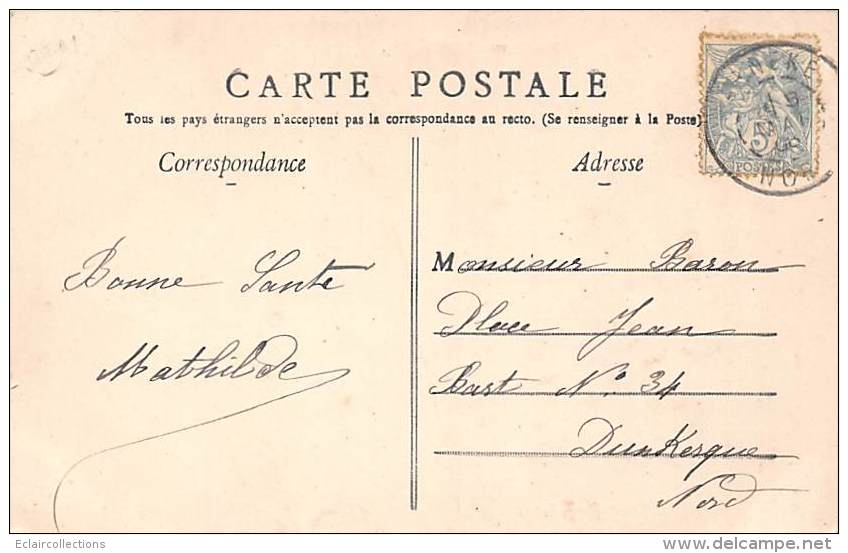 CARTE POSTALE
Tous les pays étrangers n'acceptent pas la correspondance au recto. (Se renseigner à la Poste)
Correspondance
Adresse
Bonne Santé
Mathilde
Monsieur Baron
Place Jean
Bart N.° 34
Dunkerque
Nord
5
POSTES
Eclaircollections
delcampe.net